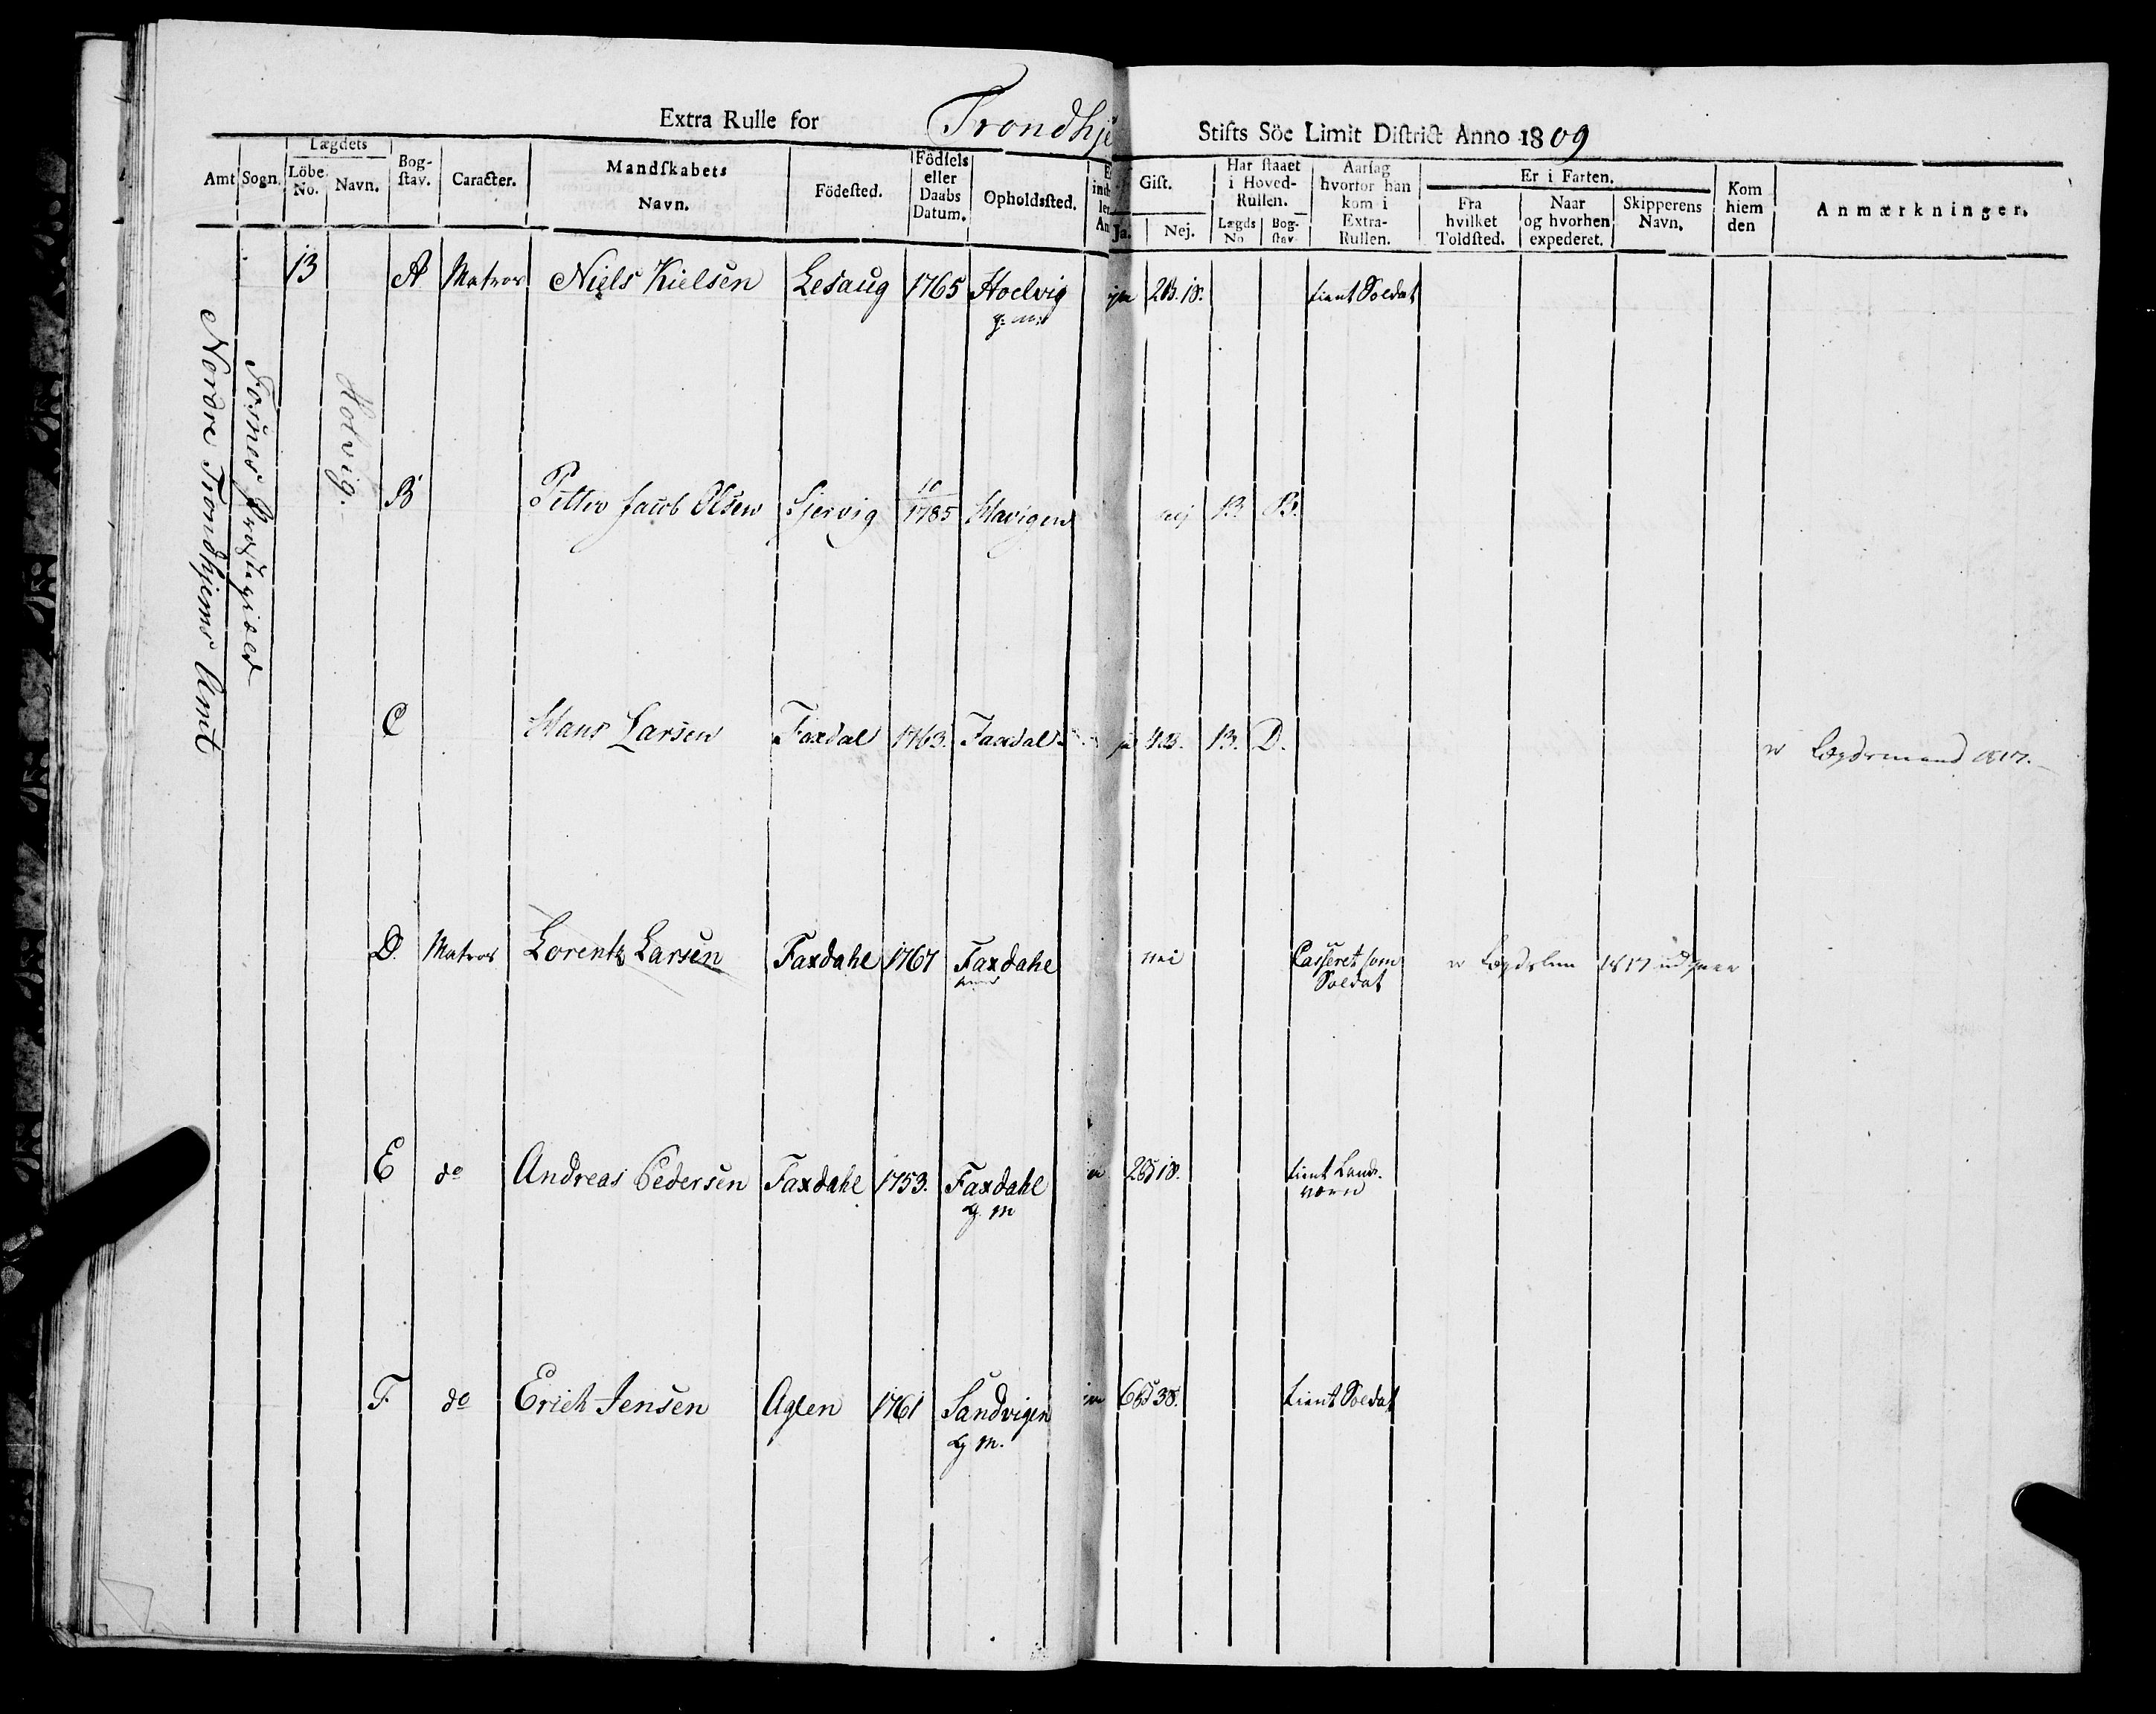 Extra Rulle for Trondhje Stifts Söe Limit District Anno 1809
Amt Sogn. Lægdets Löbe No. Navn. Bog-stav. Caracter. Mandskabets Navn. Födested. Födsels eller Daabs Datum. Opholdssted. Gift. Ja. Nej. Har staaet i Hoved-Rullen. Lægds No Bog-stav Aarsag hvorfor han kom i Extra-Rullen. Er i Farten. Fra hvilket Toldsted. Naar og hvorhen expederet. Skipperens Navn. Kom hiem den Anmærkninger.
Nordre Trondhjems Amt
Fosnes Præstegield
Hodvig.
13 A Matros Niels Kielsen Lesaug 1765 Hoelvig 2 B. 18. tient Soldat
g: m:
B Petter Jacob Olsen Sjervig 10/1785 Havigen nej 13 B.
C Hans Larsen Faxdal 1763. Faxdal ja 4 B. 13. D. Lægdsmand 1817.
D. Matros Lorentz Larsen Faxdahl 1767 Faxdahl nei Casseret som Soldat 1817
E do Andreas Pedersen Faxdahl 1753. Faxdahl tient Land-værn
g. m
F. do Erich Jensen Aglen 1761 Sandvigen tient Soldat
g m.